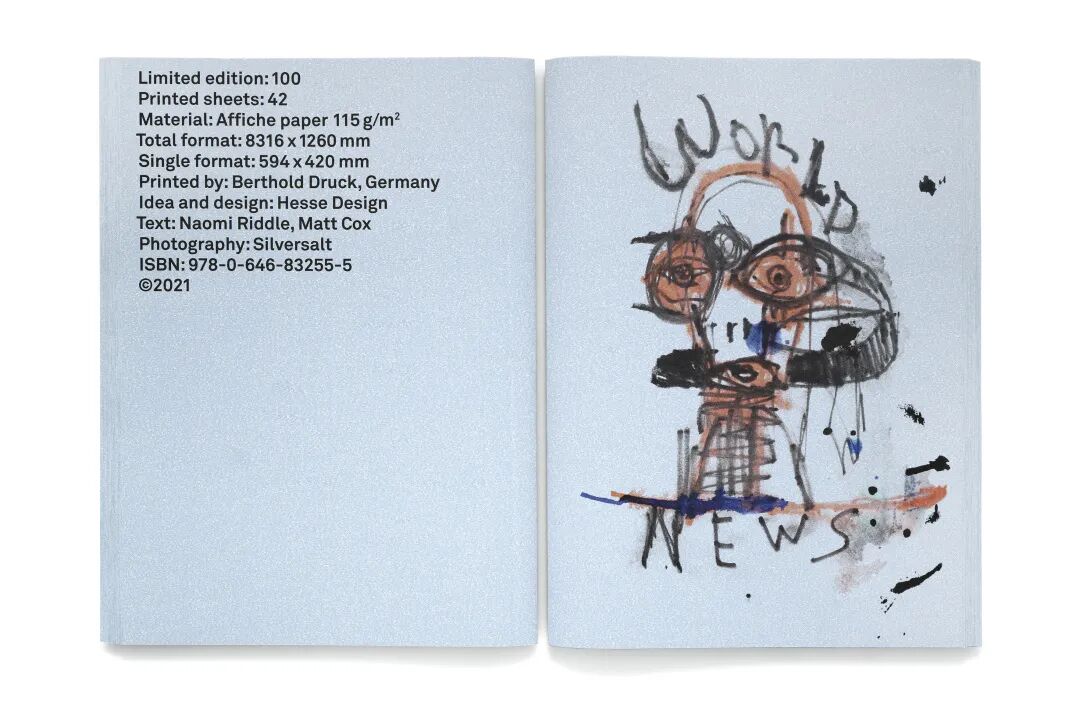 Limited edition: 100
Printed sheets: 42
Material: Affiche paper 115 g/m²
Total format: 8316 x 1260 mm
Single format: 594 x 420 mm
Printed by: Berthold Druck, Germany
Idea and design: Hesse Design
Text: Naomi Riddle, Matt Cox
Photography: Silversalt
ISBN: 978-0-646-83255-5
©2021
WORLD
NEWS